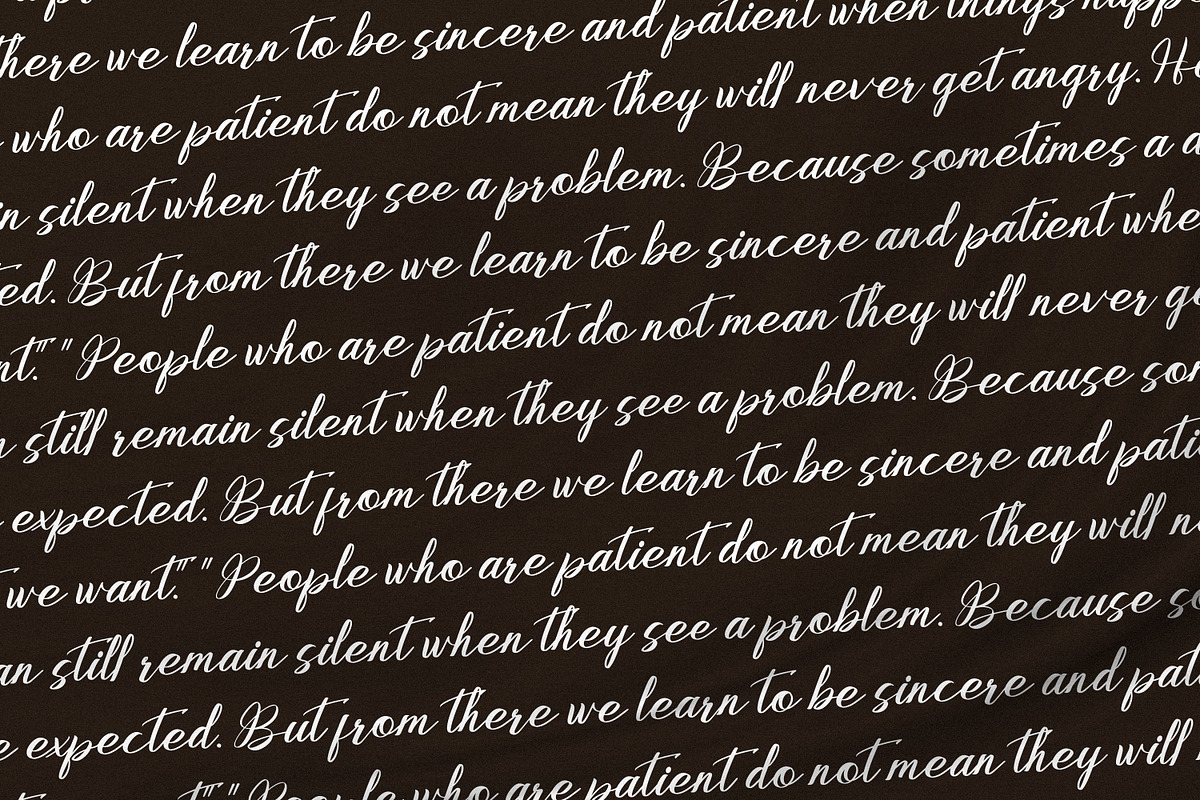 there we learn to be sincere and patient when things happ
who are patient do not mean they will never get angry. He
in silent when they see a problem. Because sometimes a d
ed. But from there we learn to be sincere and patient whe
nt." "People who are patient do not mean they will never g
n still remain silent when they see a problem. Because so
expected. But from there we learn to be sincere and pati
we want." "People who are patient do not mean they will n
an still remain silent when they see a problem. Because so
e expected. But from there we learn to be sincere and pat
" "People who are patient do not mean they will